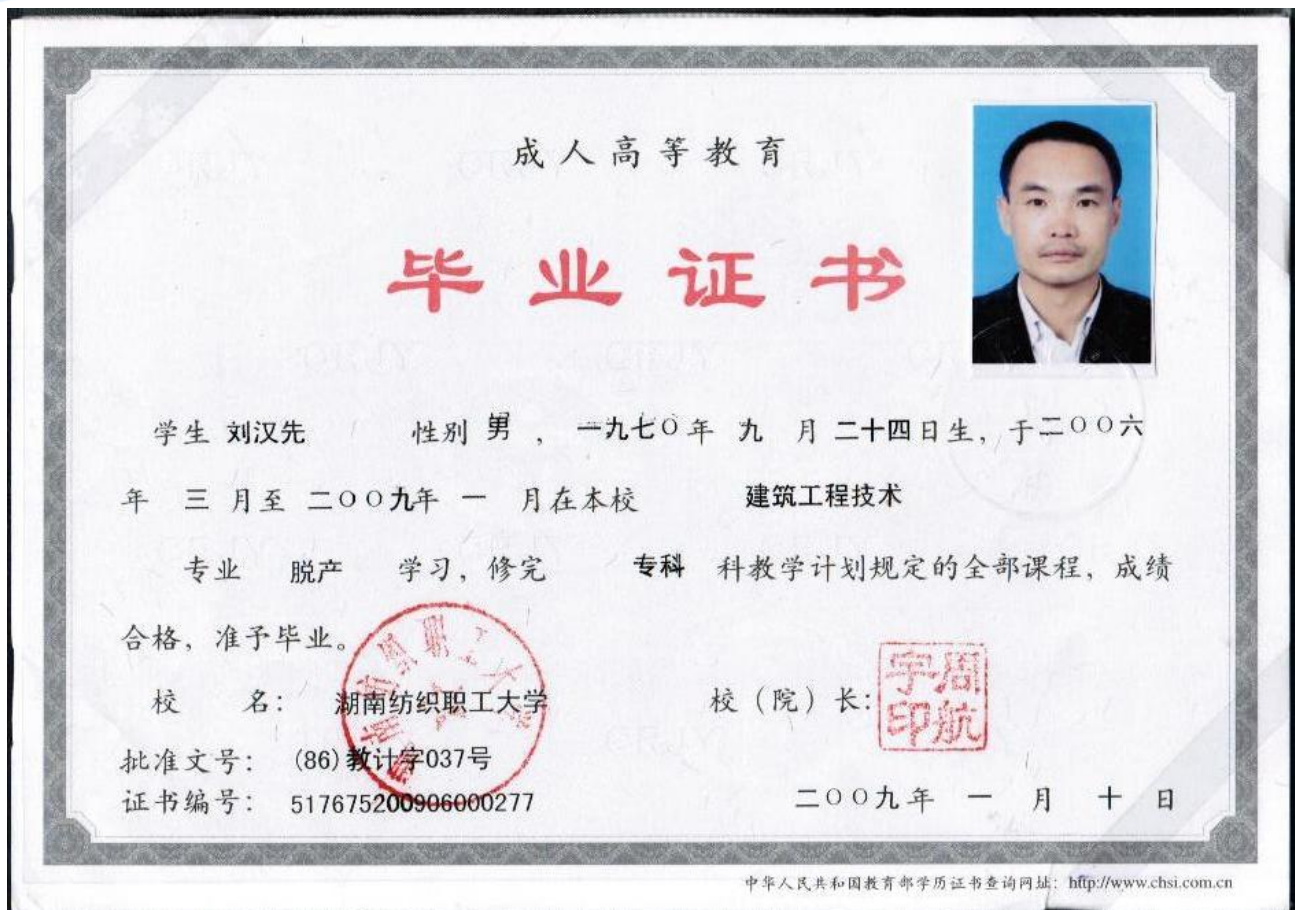 成人高等教育
毕业证书
学生 刘汉先 性别 男 , 一九七〇年 九 月 二十四日生, 于二〇〇六
年 三 月至 二〇〇九年 一 月在本校 建筑工程技术
专业 脱产 学习, 修完 专科 科教学计划规定的全部课程, 成绩
合格, 准予毕业。
校 名: 湖南纺织职工大学 校(院)长: 周航宇印
批准文号: (86)教计字037号
证书编号: 517675200906000277 二〇〇九年 一 月 十 日
中华人民共和国教育部学历证书查询网址: http://www.chsi.com.cn